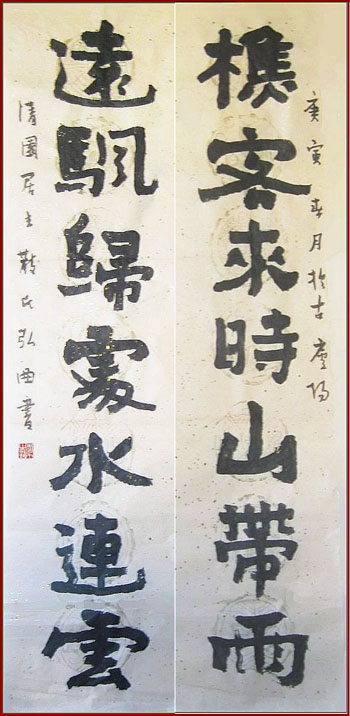 庚寅春月於古
樵客來時山帶雨
遠颿歸處水連雲
清園居主 氏弘 書